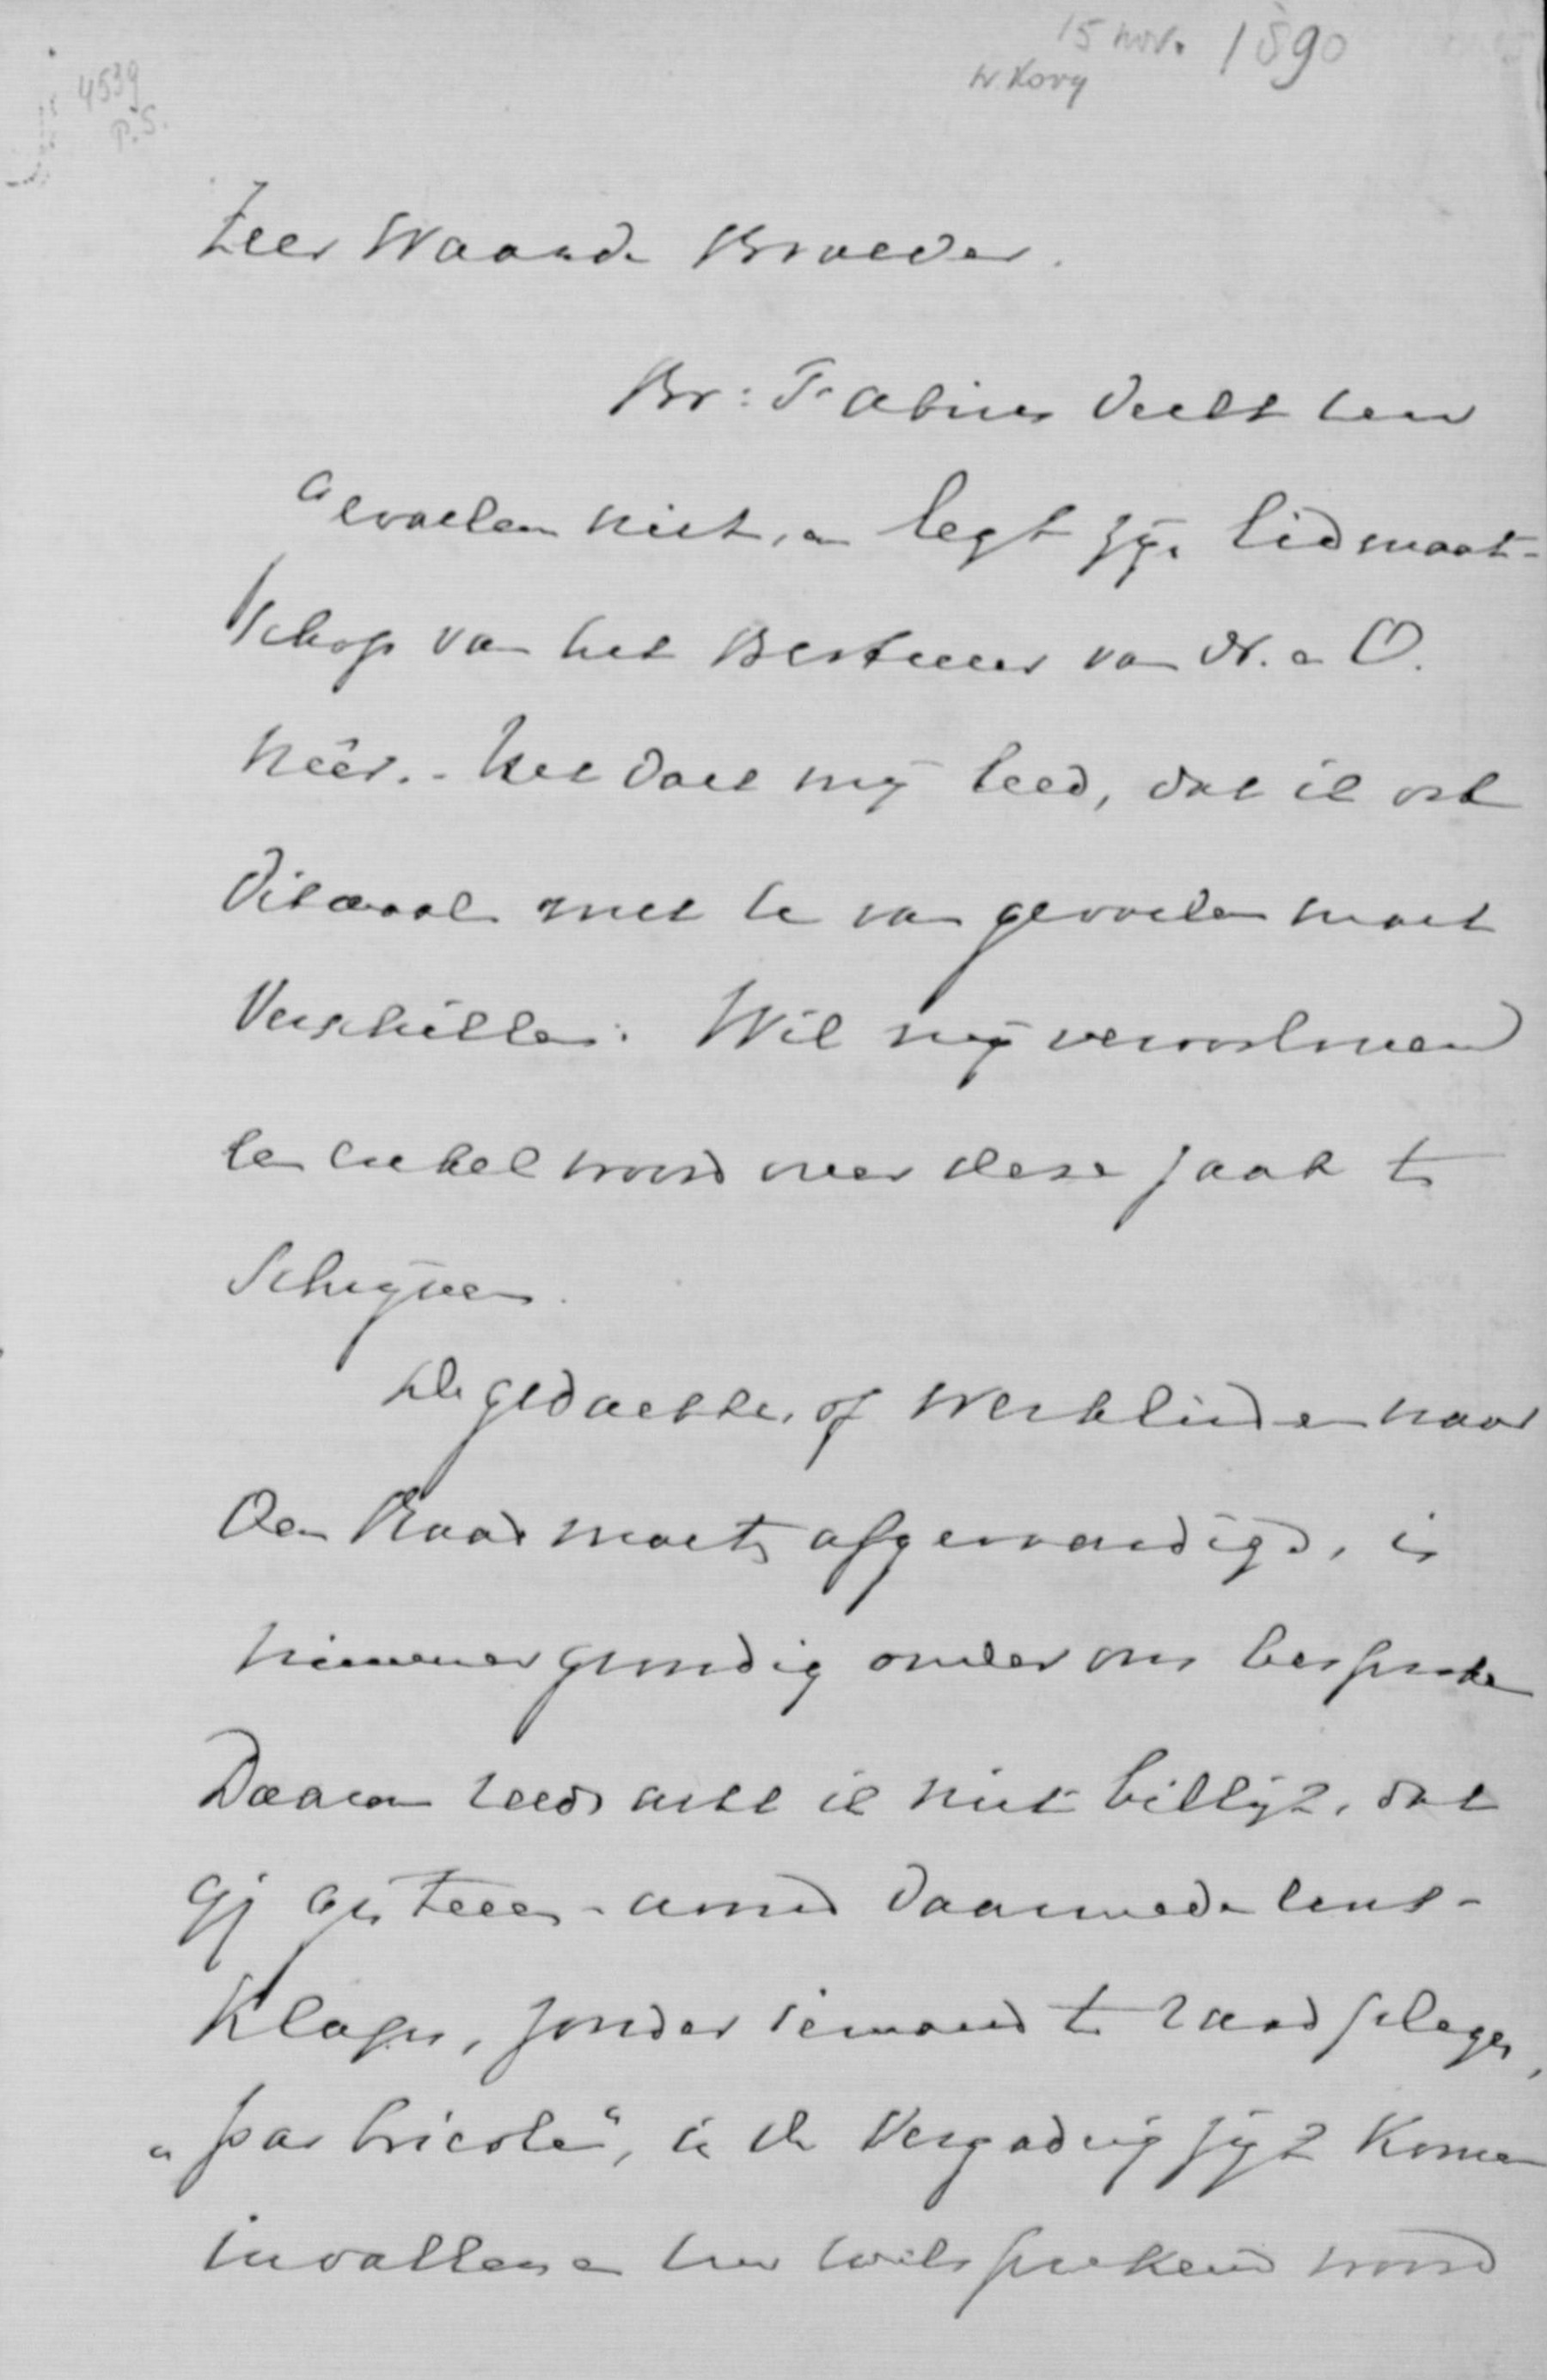 15 nov. 1890
4539
P.S.
Zeer Waarde Broeder.
Br: Fabius deelt uw
Gevoelen niet, en legt zijn lidmaat-
schap van het Bestuur van N. en O.
néêr. - Het doet mij leed, dat ik ook
ditmaal met u van gevoelen moet
Verschillen. Wil mij veroorloven
een enkel woord over deze zaak te
Schrijven.
De gedachte, of Werklieden naar
den Raad moeten afgevaardigd, is
nimmer grondig onder ons besproken
Daarom reeds acht ik niet billijk, dat
gij gisteren-avond daarmede
zonder iemand te raadplegen,
"par bricole", in de Vergadering zijt komen
invallen en uw woord